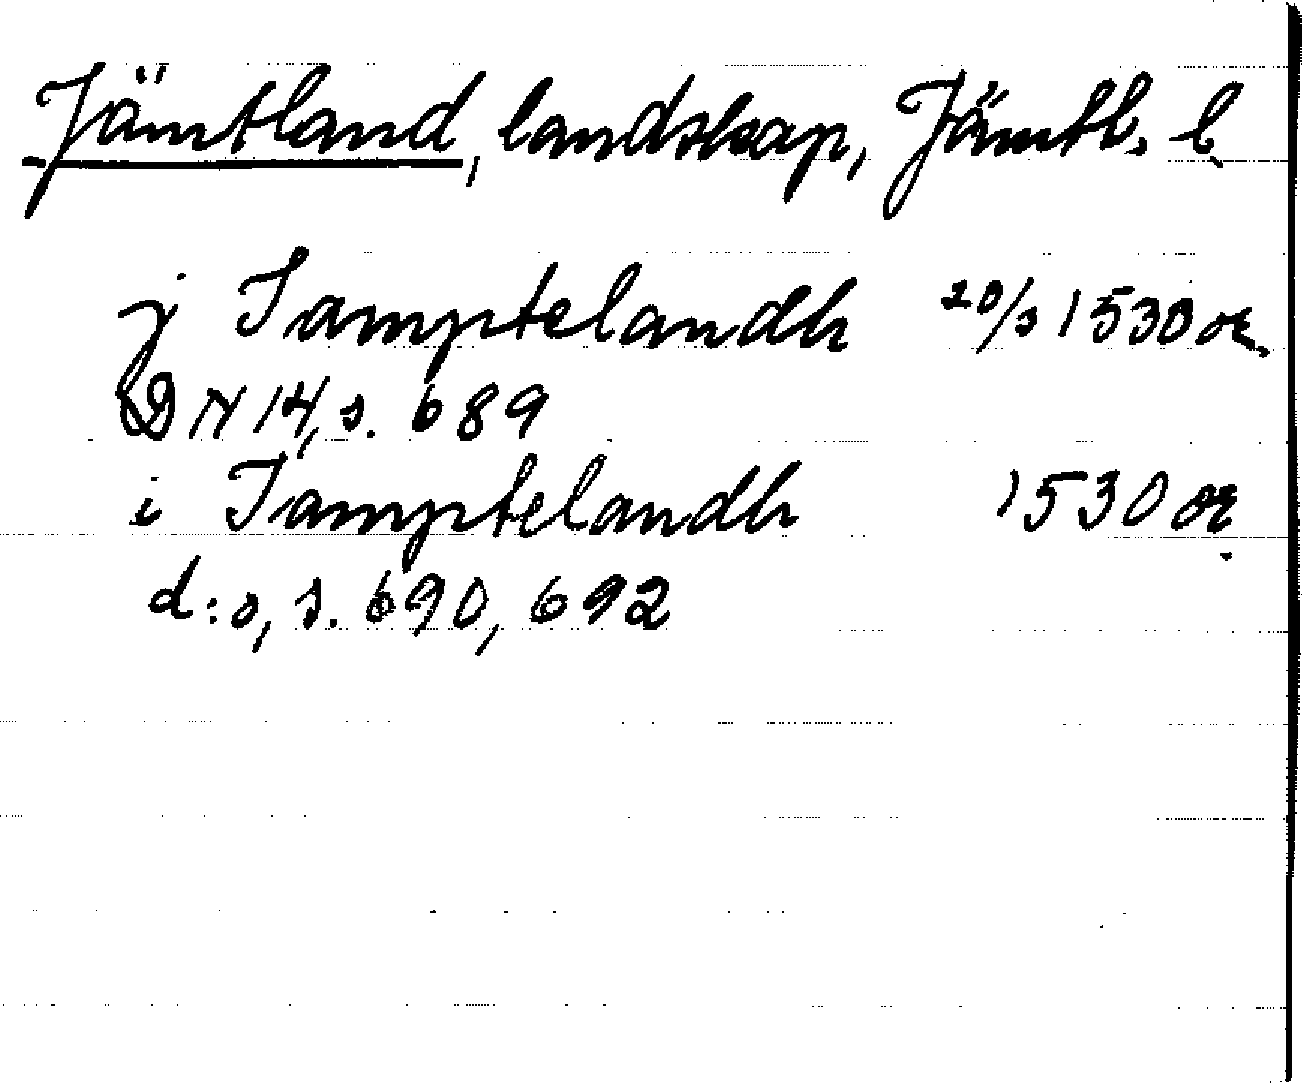 Jämtland, landskap, Jämtl. l.
j Iamptelandh 20/3 1530 or.
DN 14, s. 689
i Iamptelandh 1530 or.
d:o, s. 690, 692